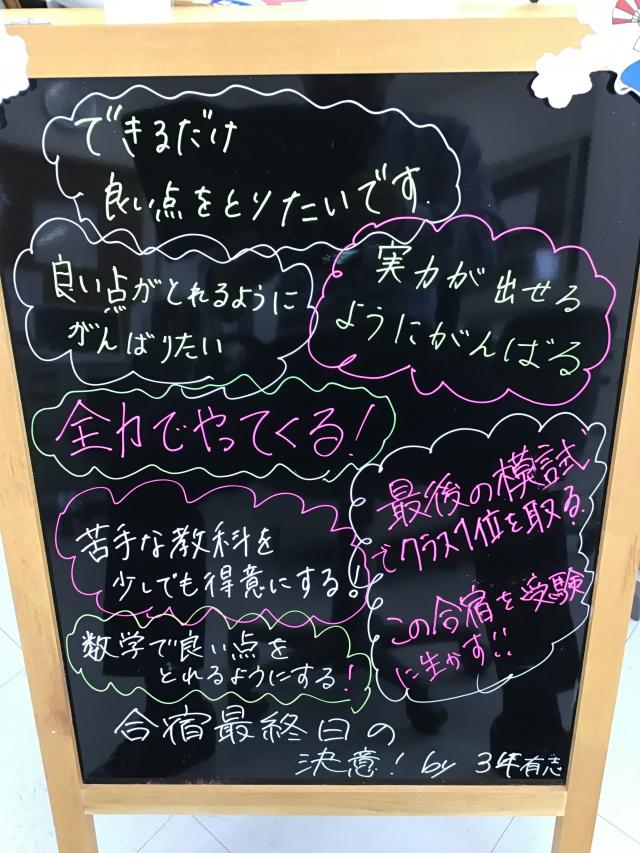 できるだけ
良い点をとりたいです.
良い点がとれるように
がんばりたい
実力が出せる
ようにがんばる
全力でやってくる!
最後の模試
でクラス1位を取る.
この合宿を受験
に生かす!!
苦手な教科を
少しでも得意にする!
数学で良い点を
とれるようにする!
合宿最終日の
決意! by 3年有志